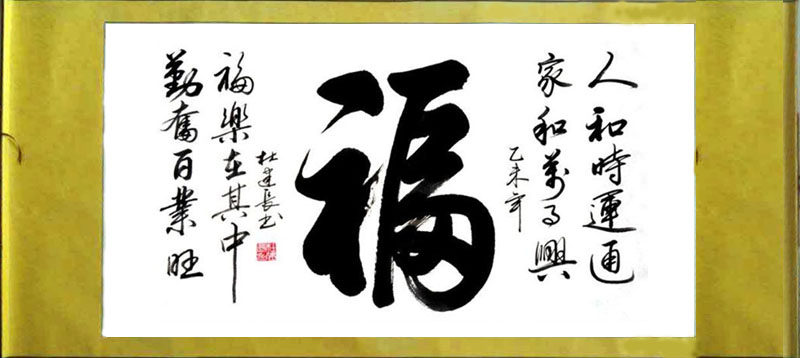 人和時運通
家和萬事興
乙未年
福
杜建長书
福樂在其中
勤奮百業旺